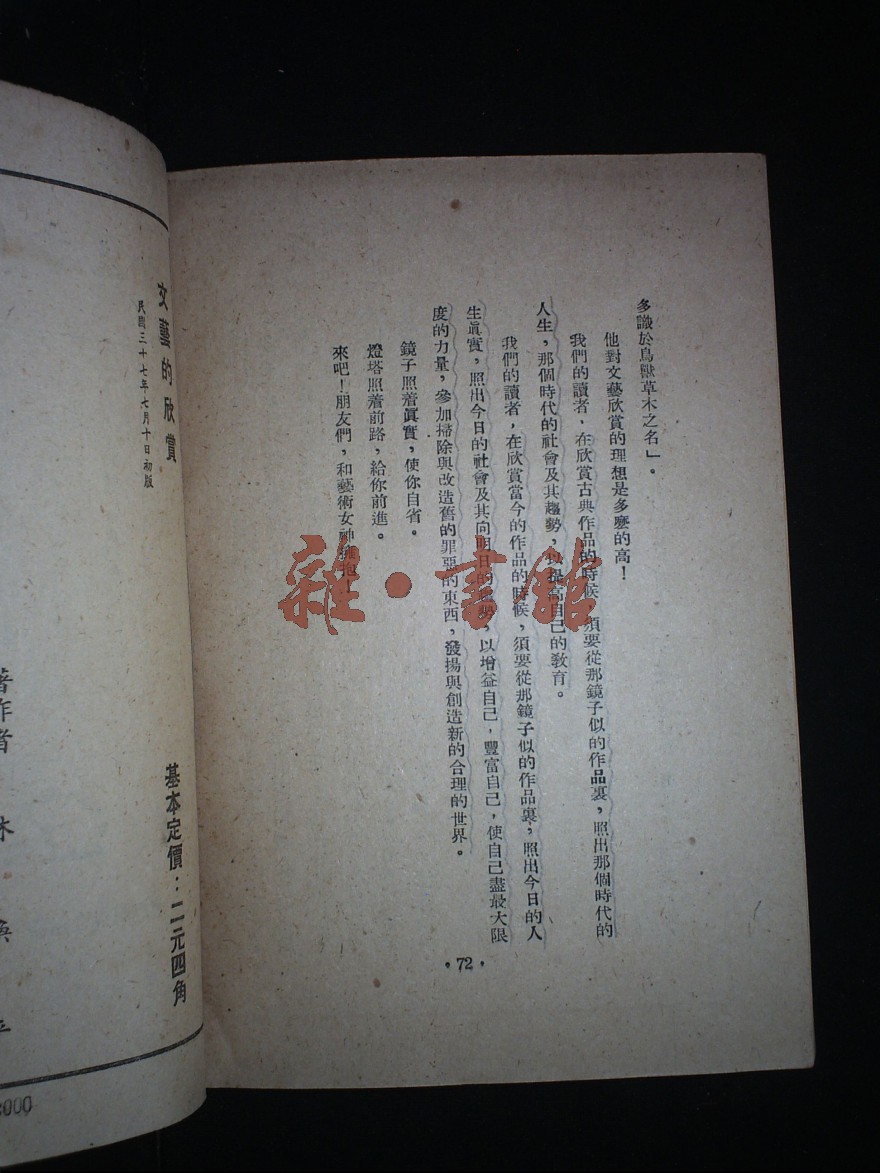 多識於鳥獸草木之名」。
他對文藝欣賞的理想是多麽的高！
我們的讀者，在欣賞古典作品的時候，須要從那鏡子似的作品裏，照出那個時代的
人生，那個時代的社會及其趨勢，以提高自己的教育。
我們的讀者，在欣賞當今的作品的時候，須要從那鏡子似的作品裏，照出今日的人
生眞實，照出今日的社會及其向明日的趨勢，以增益自己，豐富自己，使自己盡最大限
度的力量，參加掃除與改造舊的罪惡的東西，發揚與創造新的合理的世界。
鏡子照着眞實，使你自省。
燈塔照着前路，給你前進。
來吧！朋友們，和藝術女神擁抱！
•72•
文藝的欣賞
基本定價：二元四角
民國三十七年七月十日初版
著作者
平
000
雜·書館